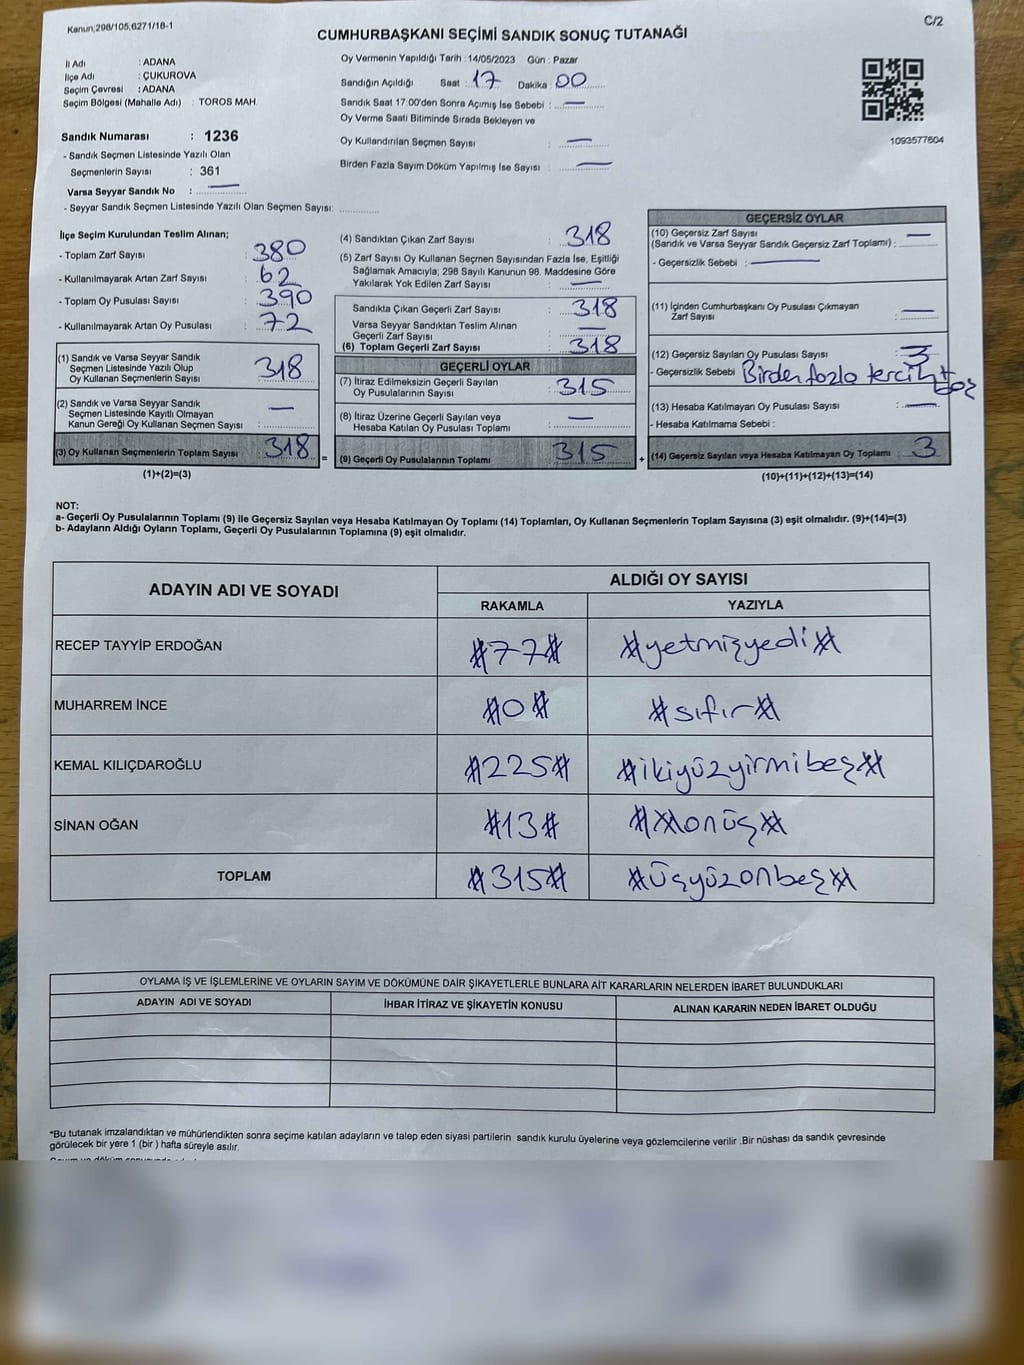 Kanun;298/105,6271/18-1
C/2
CUMHURBAŞKANI SEÇİMİ SANDIK SONUÇ TUTANAĞI
İl Adı : ADANA
İlçe Adı : ÇUKUROVA
Seçim Çevresi : ADANA
Seçim Bölgesi (Mahalle Adı) : TOROS MAH.
Sandık Numarası : 1236
- Sandık Seçmen Listesinde Yazılı Olan
Seçmenlerin Sayısı : 361
Varsa Seyyar Sandık No : —
- Seyyar Sandık Seçmen Listesinde Yazılı Olan Seçmen Sayısı:
Oy Vermenin Yapıldığı Tarih : 14/05/2023 Gün : Pazar
Sandığın Açıldığı Saat : 17 Dakika : 00
Sandık Saat 17:00'den Sonra Açımış İse Sebebi : —
Oy Verme Saati Bitiminde Sırada Bekleyen ve
Oy Kullandırılan Seçmen Sayısı : —
Birden Fazla Sayım Döküm Yapılmış İse Sayısı : —
1093577604
İlçe Seçim Kurulundan Teslim Alınan;
- Toplam Zarf Sayısı : 380
- Kullanılmayarak Artan Zarf Sayısı : 62
- Toplam Oy Pusulası Sayısı : 390
- Kullanılmayarak Artan Oy Pusulası : 72
(1) Sandık ve Varsa Seyyar Sandık
Seçmen Listesinde Yazılı Olup
Oy Kullanan Seçmenlerin Sayısı : 318
(2) Sandık ve Varsa Seyyar Sandık
Seçmen Listesinde Kayıtlı Olmayan
Kanun Gereği Oy Kullanan Seçmen Sayısı : —
(3) Oy Kullanan Seçmenlerin Toplam Sayısı : 318
(1)+(2)=(3)
(4) Sandıktan Çıkan Zarf Sayısı : 318
(5) Zarf Sayısı Oy Kullanan Seçmen Sayısından Fazla İse, Eşitliği
Sağlamak Amacıyla; 298 Sayılı Kanunun 98. Maddesine Göre
Yakılarak Yok Edilen Zarf Sayısı : —
Sandıkta Çıkan Geçerli Zarf Sayısı : 318
Varsa Seyyar Sandıktan Teslim Alınan
Geçerli Zarf Sayısı : —
(6) Toplam Geçerli Zarf Sayısı : 318
GEÇERLİ OYLAR
(7) İtiraz Edilmeksizin Geçerli Sayılan
Oy Pusulalarının Sayısı : 315
(8) İtiraz Üzerine Geçerli Sayılan veya
Hesaba Katılan Oy Pusulası Toplamı : —
= (9) Geçerli Oy Pusulalarının Toplamı 315 +
GEÇERSİZ OYLAR
(10) Geçersiz Zarf Sayısı
(Sandık ve Varsa Seyyar Sandık Geçersiz Zarf Toplamı) : —
- Geçersizlik Sebebi : —
(11) İçinden Cumhurbaşkanı Oy Pusulası Çıkmayan
Zarf Sayısı : —
(12) Geçersiz Sayılan Oy Pusulası Sayısı : 3
- Geçersizlik Sebebi Birden fazla tercih+
boş
(13) Hesaba Katılmayan Oy Pusulası Sayısı : —
- Hesaba Katılmama Sebebi :
(14) Geçersiz Sayılan veya Hesaba Katılmayan Oy Toplamı 3
(10)+(11)+(12)+(13)=(14)
NOT:
a- Geçerli Oy Pusulalarının Toplamı (9) ile Geçersiz Sayılan veya Hesaba Katılmayan Oy Toplamı (14) Toplamları, Oy Kullanan Seçmenlerin Toplam Sayısına (3) eşit olmalıdır. (9)+(14)=(3)
b- Adayların Aldığı Oyların Toplamı, Geçerli Oy Pusulalarının Toplamına (9) eşit olmalıdır.
ADAYIN ADI VE SOYADI ALDIĞI OY SAYISI
RAKAMLA YAZIYLA
RECEP TAYYİP ERDOĞAN #77# #yetmişyedi#
MUHARREM İNCE #0# #sıfır#
KEMAL KILIÇDAROĞLU #225# #ikiyüzyirmibeş#
SİNAN OĞAN #13# ##onüç#
TOPLAM #315# #üçyüzonbeş#
OYLAMA İŞ VE İŞLEMLERİNE VE OYLARIN SAYIM VE DÖKÜMÜNE DAİR ŞİKAYETLERLE BUNLARA AİT KARARLARIN NELERDEN İBARET BULUNDUKLARI
ADAYIN ADI VE SOYADI İHBAR İTİRAZ VE ŞİKAYETİN KONUSU ALINAN KARARIN NEDEN İBARET OLDUĞU
*Bu tutanak imzalandıktan ve mühürlendikten sonra seçime katılan adayların ve talep eden siyasi partilerin sandık kurulu üyelerine veya gözlemcilerine verilir .Bir nüshası da sandık çevresinde
görülecek bir yere 1 (bir ) hafta süreyle asılır.